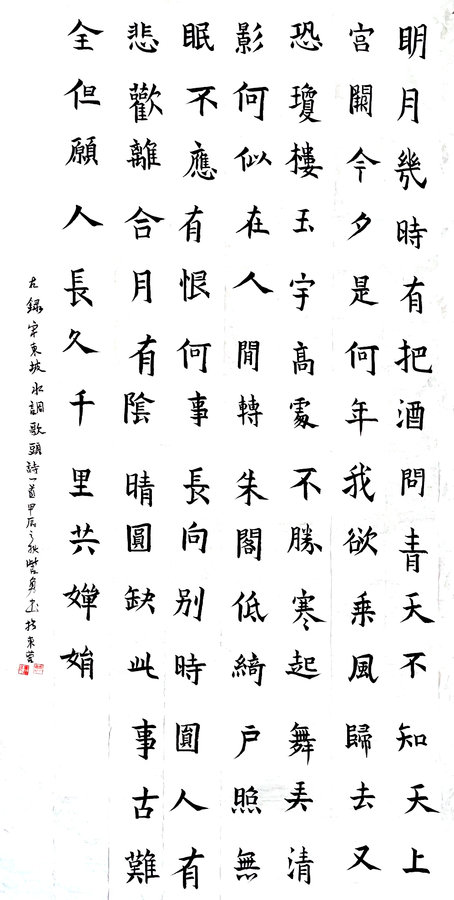 明月幾時有把酒問青天不知天上
宮闕今夕是何年我欲乘風歸去又
恐瓊樓玉宇高處不勝寒起舞弄清
影何似在人閒轉朱閣低綺戶照無
眠不應有恨何事長向别時圓人有
悲歡離合月有陰晴圓缺此事古難
全但願人長久千里共嬋娟
左録宋東坡水調歌頭詩一首甲辰之秋書於東莞